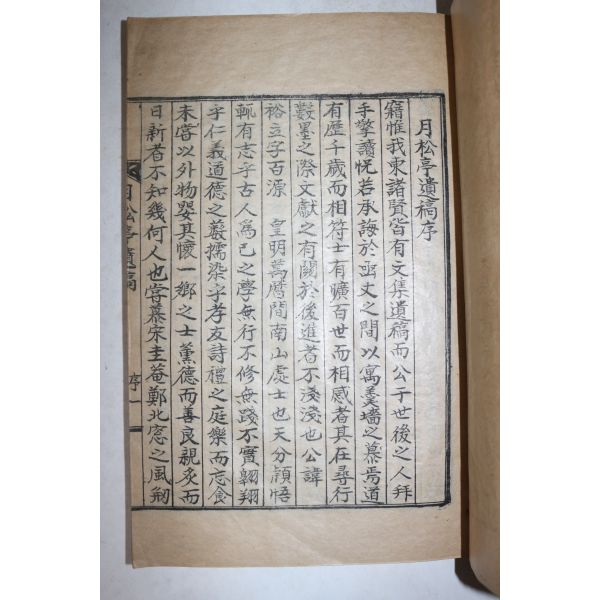 月松亭遺稿序
竊惟我東諸賢皆有文集遺稿而公于世後之人拜
手擎讀怳若承誨於函丈之間以寓羹墻之慕焉道
有歷千歲而相符士有曠百世而相感者其在尋行
數墨之際文獻之有關於後進者不淺淺也公諱
裕立字百源 皇明萬曆間南山處士也天分頴悟
輒有志乎古人爲己之學無行不修無踐不實翺翔
乎仁義道德之藪擩染乎孝友詩禮之庭樂而忘食
未嘗以外物嬰其懷一鄕之士薰德而善良親炙而
日新者不知幾何人也嘗慕宋圭菴鄭北窓之風剏
月松亭遺稿 序 一